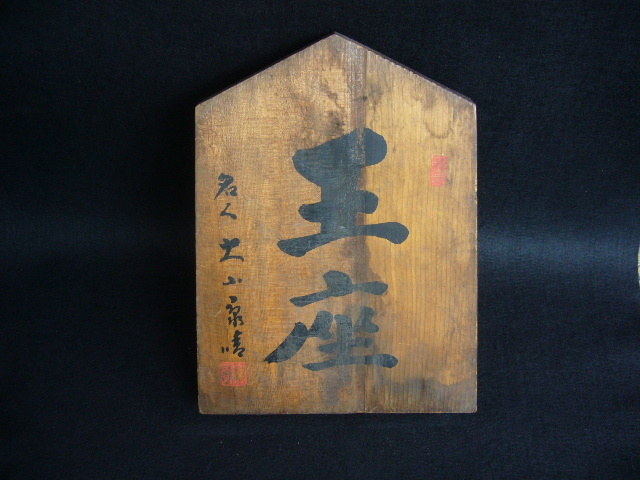 王座
名人 大山康晴